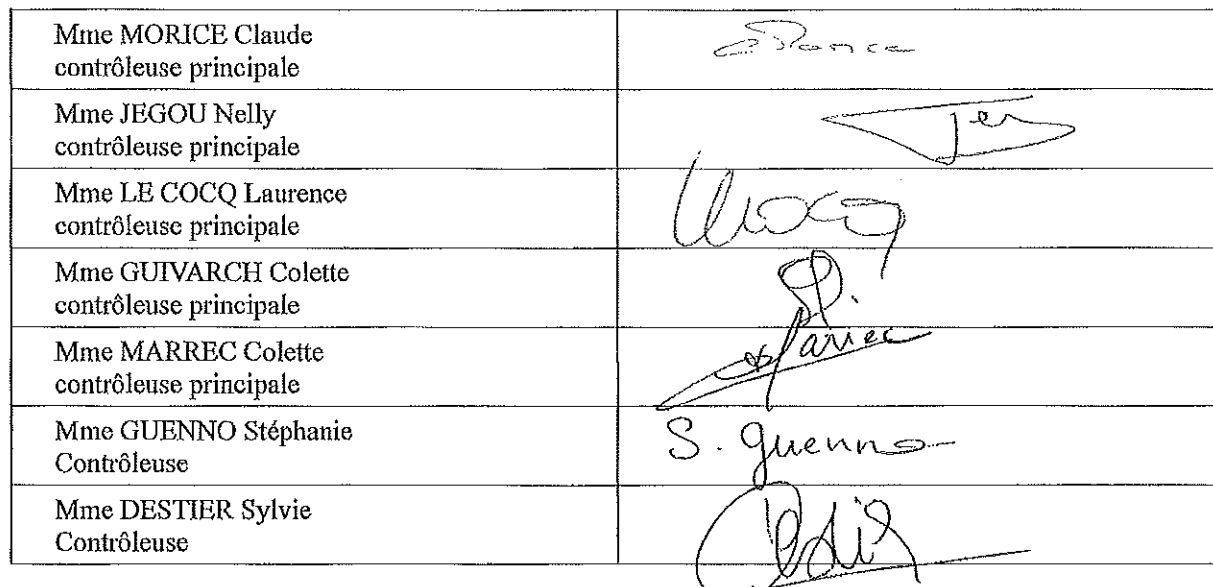 Mme MORICE Claude
contrôleuse principale
Mme JEGOU Nelly
contrôleuse principale
Mme LE COCQ Laurence
contrôleuse principale
Mme GUIVARCH Colette
contrôleuse principale
Mme MARREC Colette
contrôleuse principale
Mme GUENNO Stéphanie
Contrôleuse
S. guenno
Mme DESTIER Sylvie
Contrôleuse